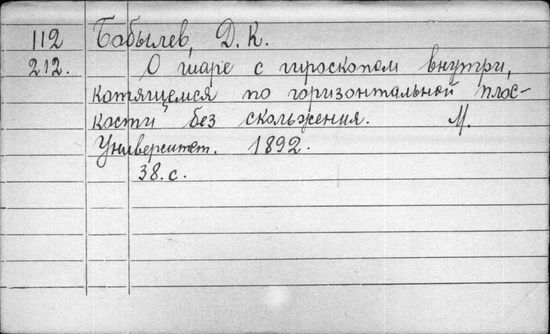 112 Бобылев, Д. К.
212. О шаре с гироскопом внутри,
катящемся по горизонтальной плос-
кости без скольжения. М.
Университет. 1892.
38. с.